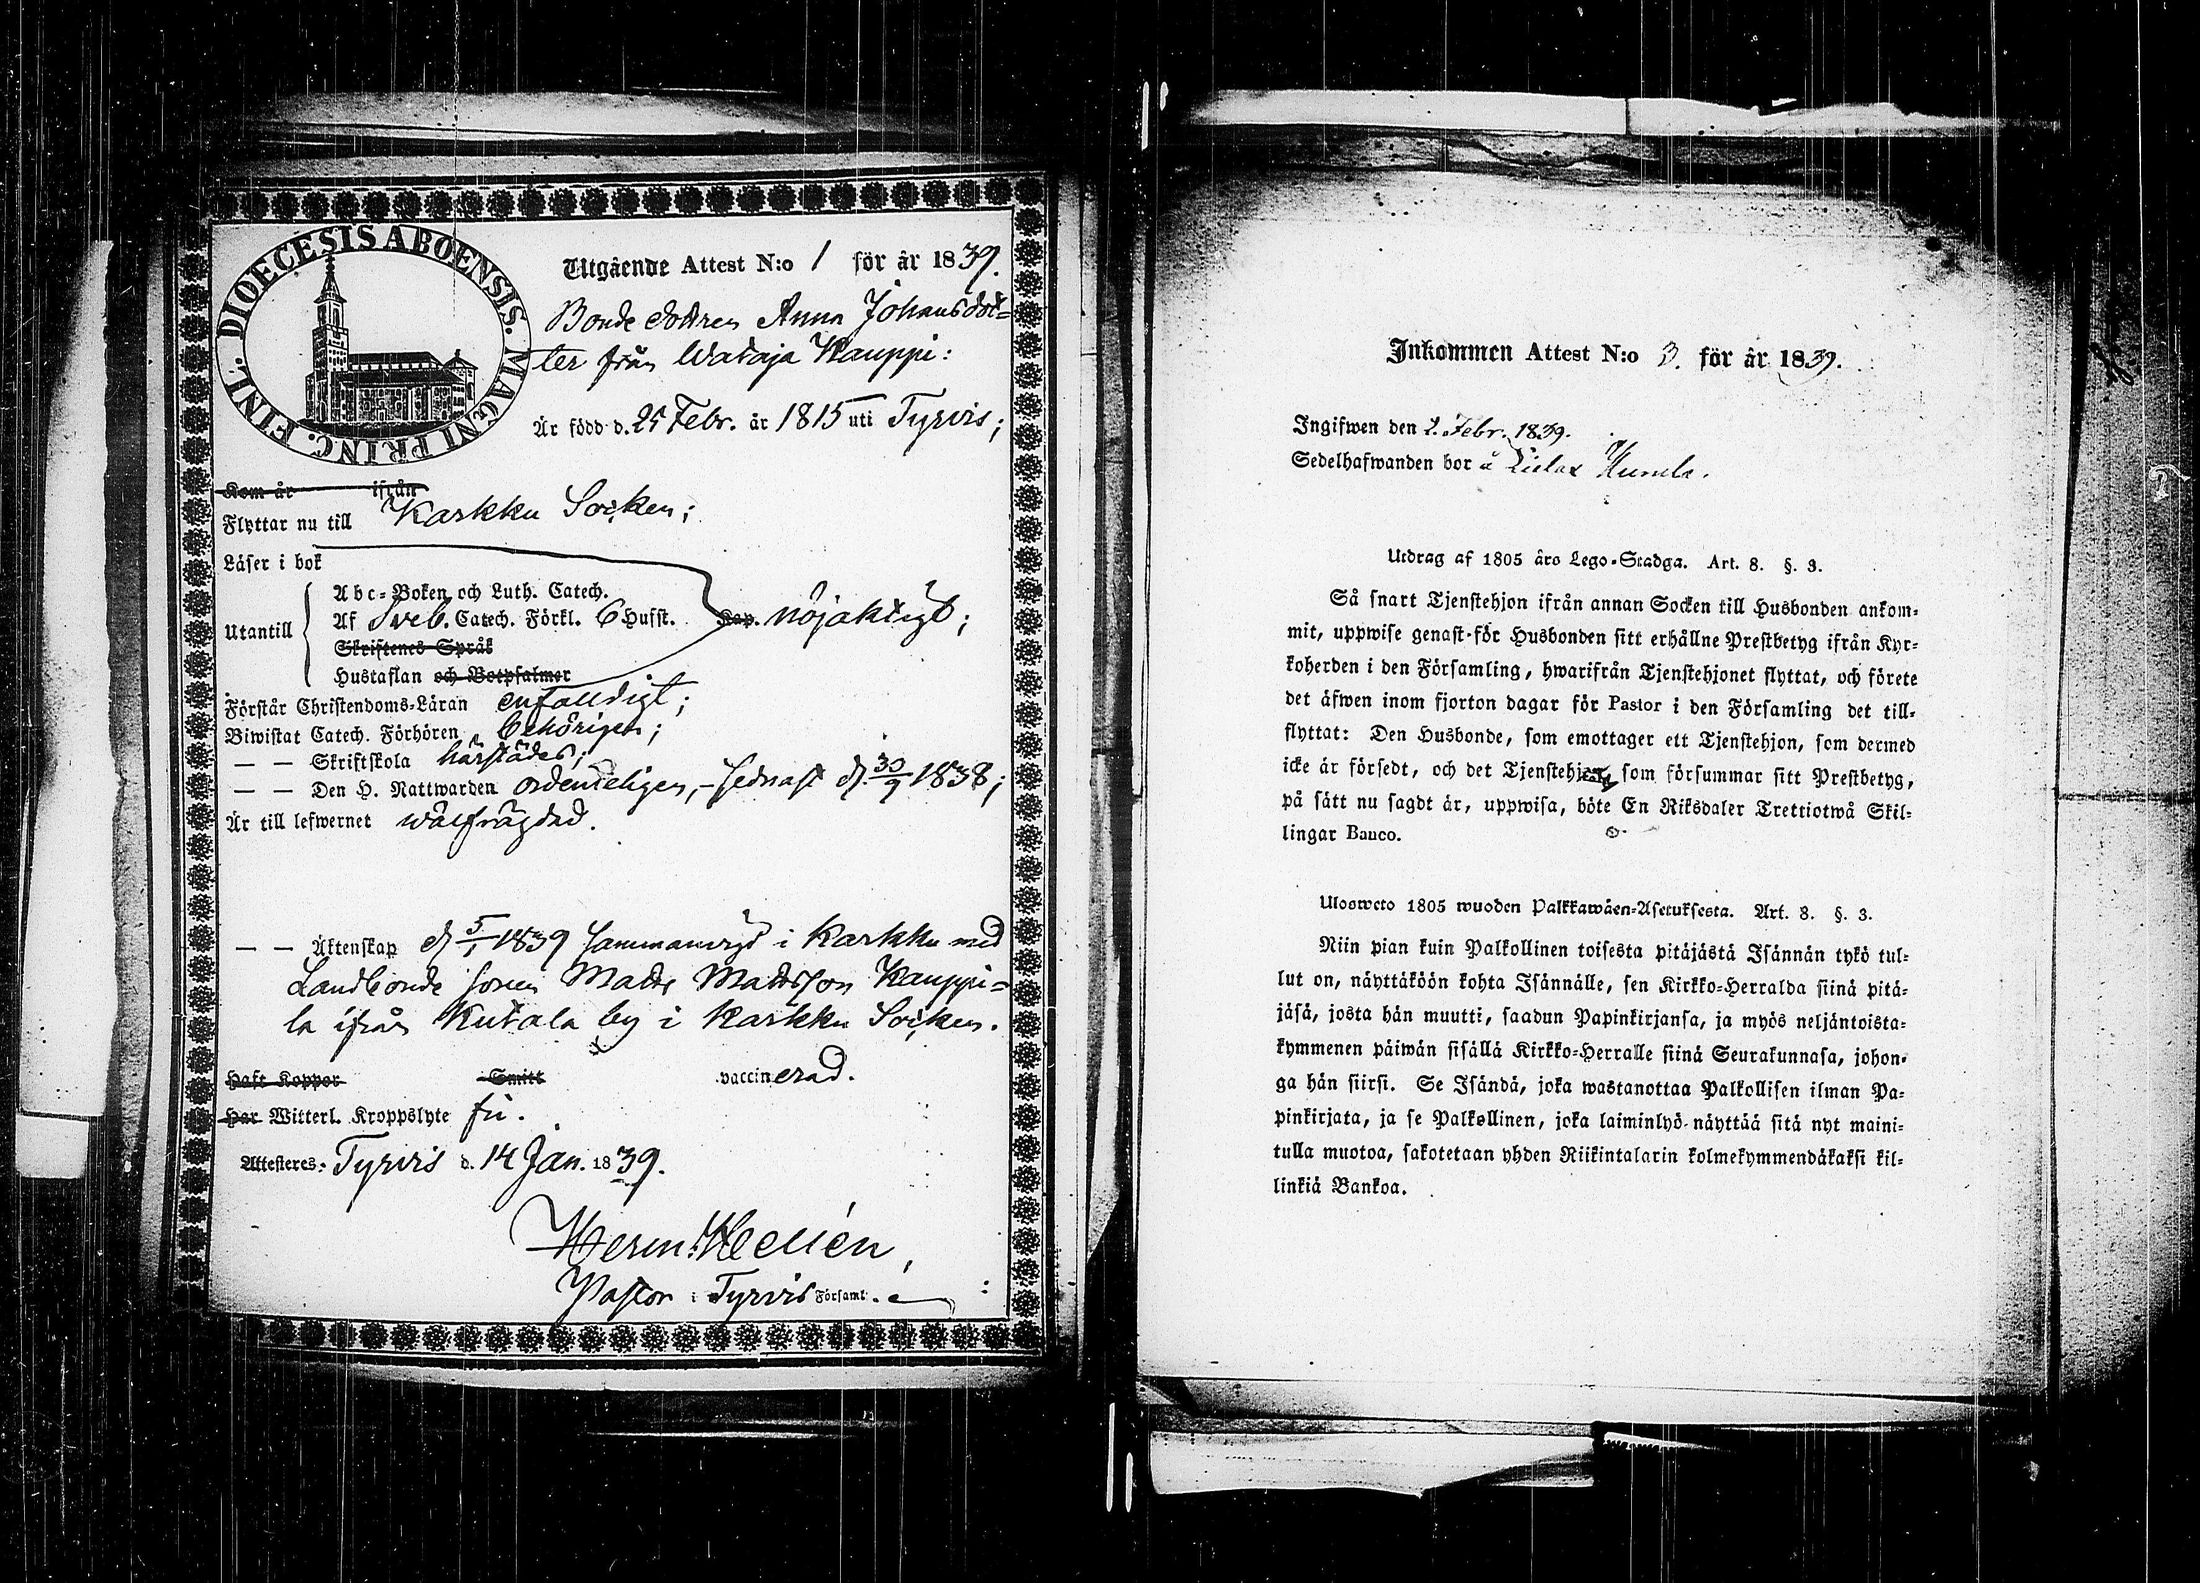 DIOECESIS ABOENSIS. MAGNI PRINC. FINL.
Utgående Attest N:o 1 för år 1839.
Bonde dottren Anna Johansdot=
ter från Wataja Kauppi:
Är född d. 25 Febr. år 1815 uti Tyrvis;
Kom år ifrån
Flyttar nu till Karkku Socken;
Läser i bok
Utantill
Abc-Boken och Luth. Catech.
Af Sveb. Catech. Förkl. 6 Hufst. Kap. nöjaktigt;
Skriftenes Språk
Hustaflan och Botpsalmer
Förstår Christendoms-Läran enfaldigt;
Biwistat Catech. Förhören behörigen;
— — Skriftskola härstädes;
— — Den H. Nattwarden ordenteligen, - sednast d. 30/9 1838;
Är till lefwernet wälfrägdad.
— — Äktenskap d 5/1 1839 sammanvigd i Karkku med
Landbonde sonen Matts Mattsson Kauppi=
la ifrån Kutala by i Karkku Socken.
Haft Koppor Smitt vaccinerad.
Har Witterl. Kroppslyte fri.
Attesteres. Tyrvis d. 14 Jan. 1839.
Herm: Hellén,
Pastor i Tyrvis Församl.
Inkommen Attest N:o 3. för år 1839.
Ingifwen den 2. Febr. 1839.
Sedelhafwanden bor å
Utdrag af 1805 års Lego-Stadga. Art. 8. §. 3.
Så snart Tjenstehjon ifrån annan Socken till Husbonden ankom-
mit, uppwise genast för Husbonden sitt erhållne Prestbetyg ifrån Kyr-
koherden i den Församling, hwarifrån Tjenstehjonet flyttat, och förete
det äfwen inom fjorton dagar för Pastor i den Församling det till-
flyttat: Den Husbonde, som emottager ett Tjenstehjon, som dermed
icke är försedt, och det Tjenstehjon, som försummar sitt Prestbetyg,
på sätt nu sagdt är, uppwisa, böte En Riksdaler Trettiotwå Skil-
lingar Banco.
Ulosweto 1805 wuoden Palkkawäen-Asetuksesta. Art. 8. §. 3.
Niin pian kuin Palkollinen toisesta pitäjästä Isännän tykö tul-
lut on, näyttäköön kohta Isännälle, sen Kirkko-Herralda siinä pitä-
jäsä, josta hän muutti, saadun Papinkirjansa, ja myös neljäntoista-
kymmenen päiwän sisällä Kirkko-Herralle siinä Seurakunnasa, johon-
ga hän siirsi. Se Isändä, joka wastanottaa Palkollisen ilman Pa-
pinkirjata, ja se Palkollinen, joka laiminlyö näyttää sitä nyt maini-
tulla muotoa, sakotetaan yhden Riikintalarin kolmekymmendäkaksi kil-
linkiä Bankoa.